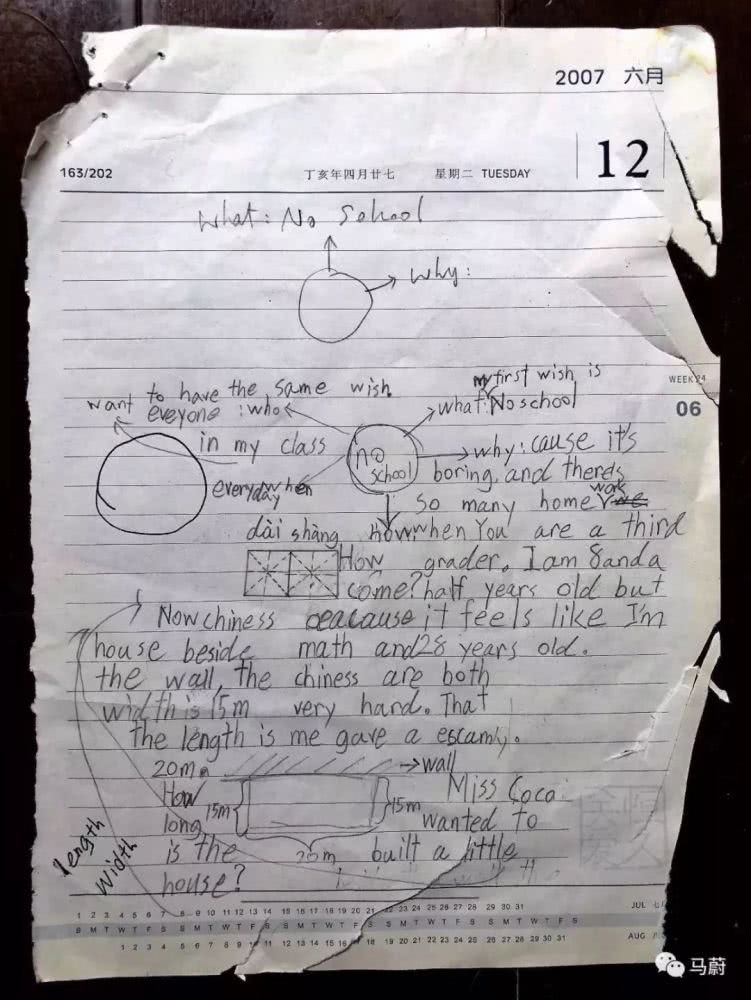 2007 六月
12
163/202 丁亥年四月廿七 星期二 TUESDAY
What: No School
Why:
my first wish is
want to have the same wish
WEEK 24
eveyone : who
what: No school
06
in my class
no school
why: cause it's
boring, and there's
everyday when
work
so many home
dài shàng How: when You are a third
How grader. I am 8 and a
come? half years old but
Now chiness beacause it feels like I'm
house beside math and 28 years old.
the wall, the chiness are both
width is 15m very hard. That
the length is me gave a
20m. → wall
How 15m 15m Miss Coco:
long wanted to
is the 20m built a little
house?
length
width
1 2 3 4 5 6 7 8 9 10 11 12 13 14 15 16 17 18 19 20 21 22 23 24 25 26 27 28 29 30 31 JUL
S M T W T F S S M T W T F S S M T W T F S S M T W T F S S M T W T F S
1 2 3 4 5 6 7 8 9 10 11 12 13 14 15 16 17 18 19 20 21 22 23 24 25 26 27 28 29 30 31 AUG
马蔚